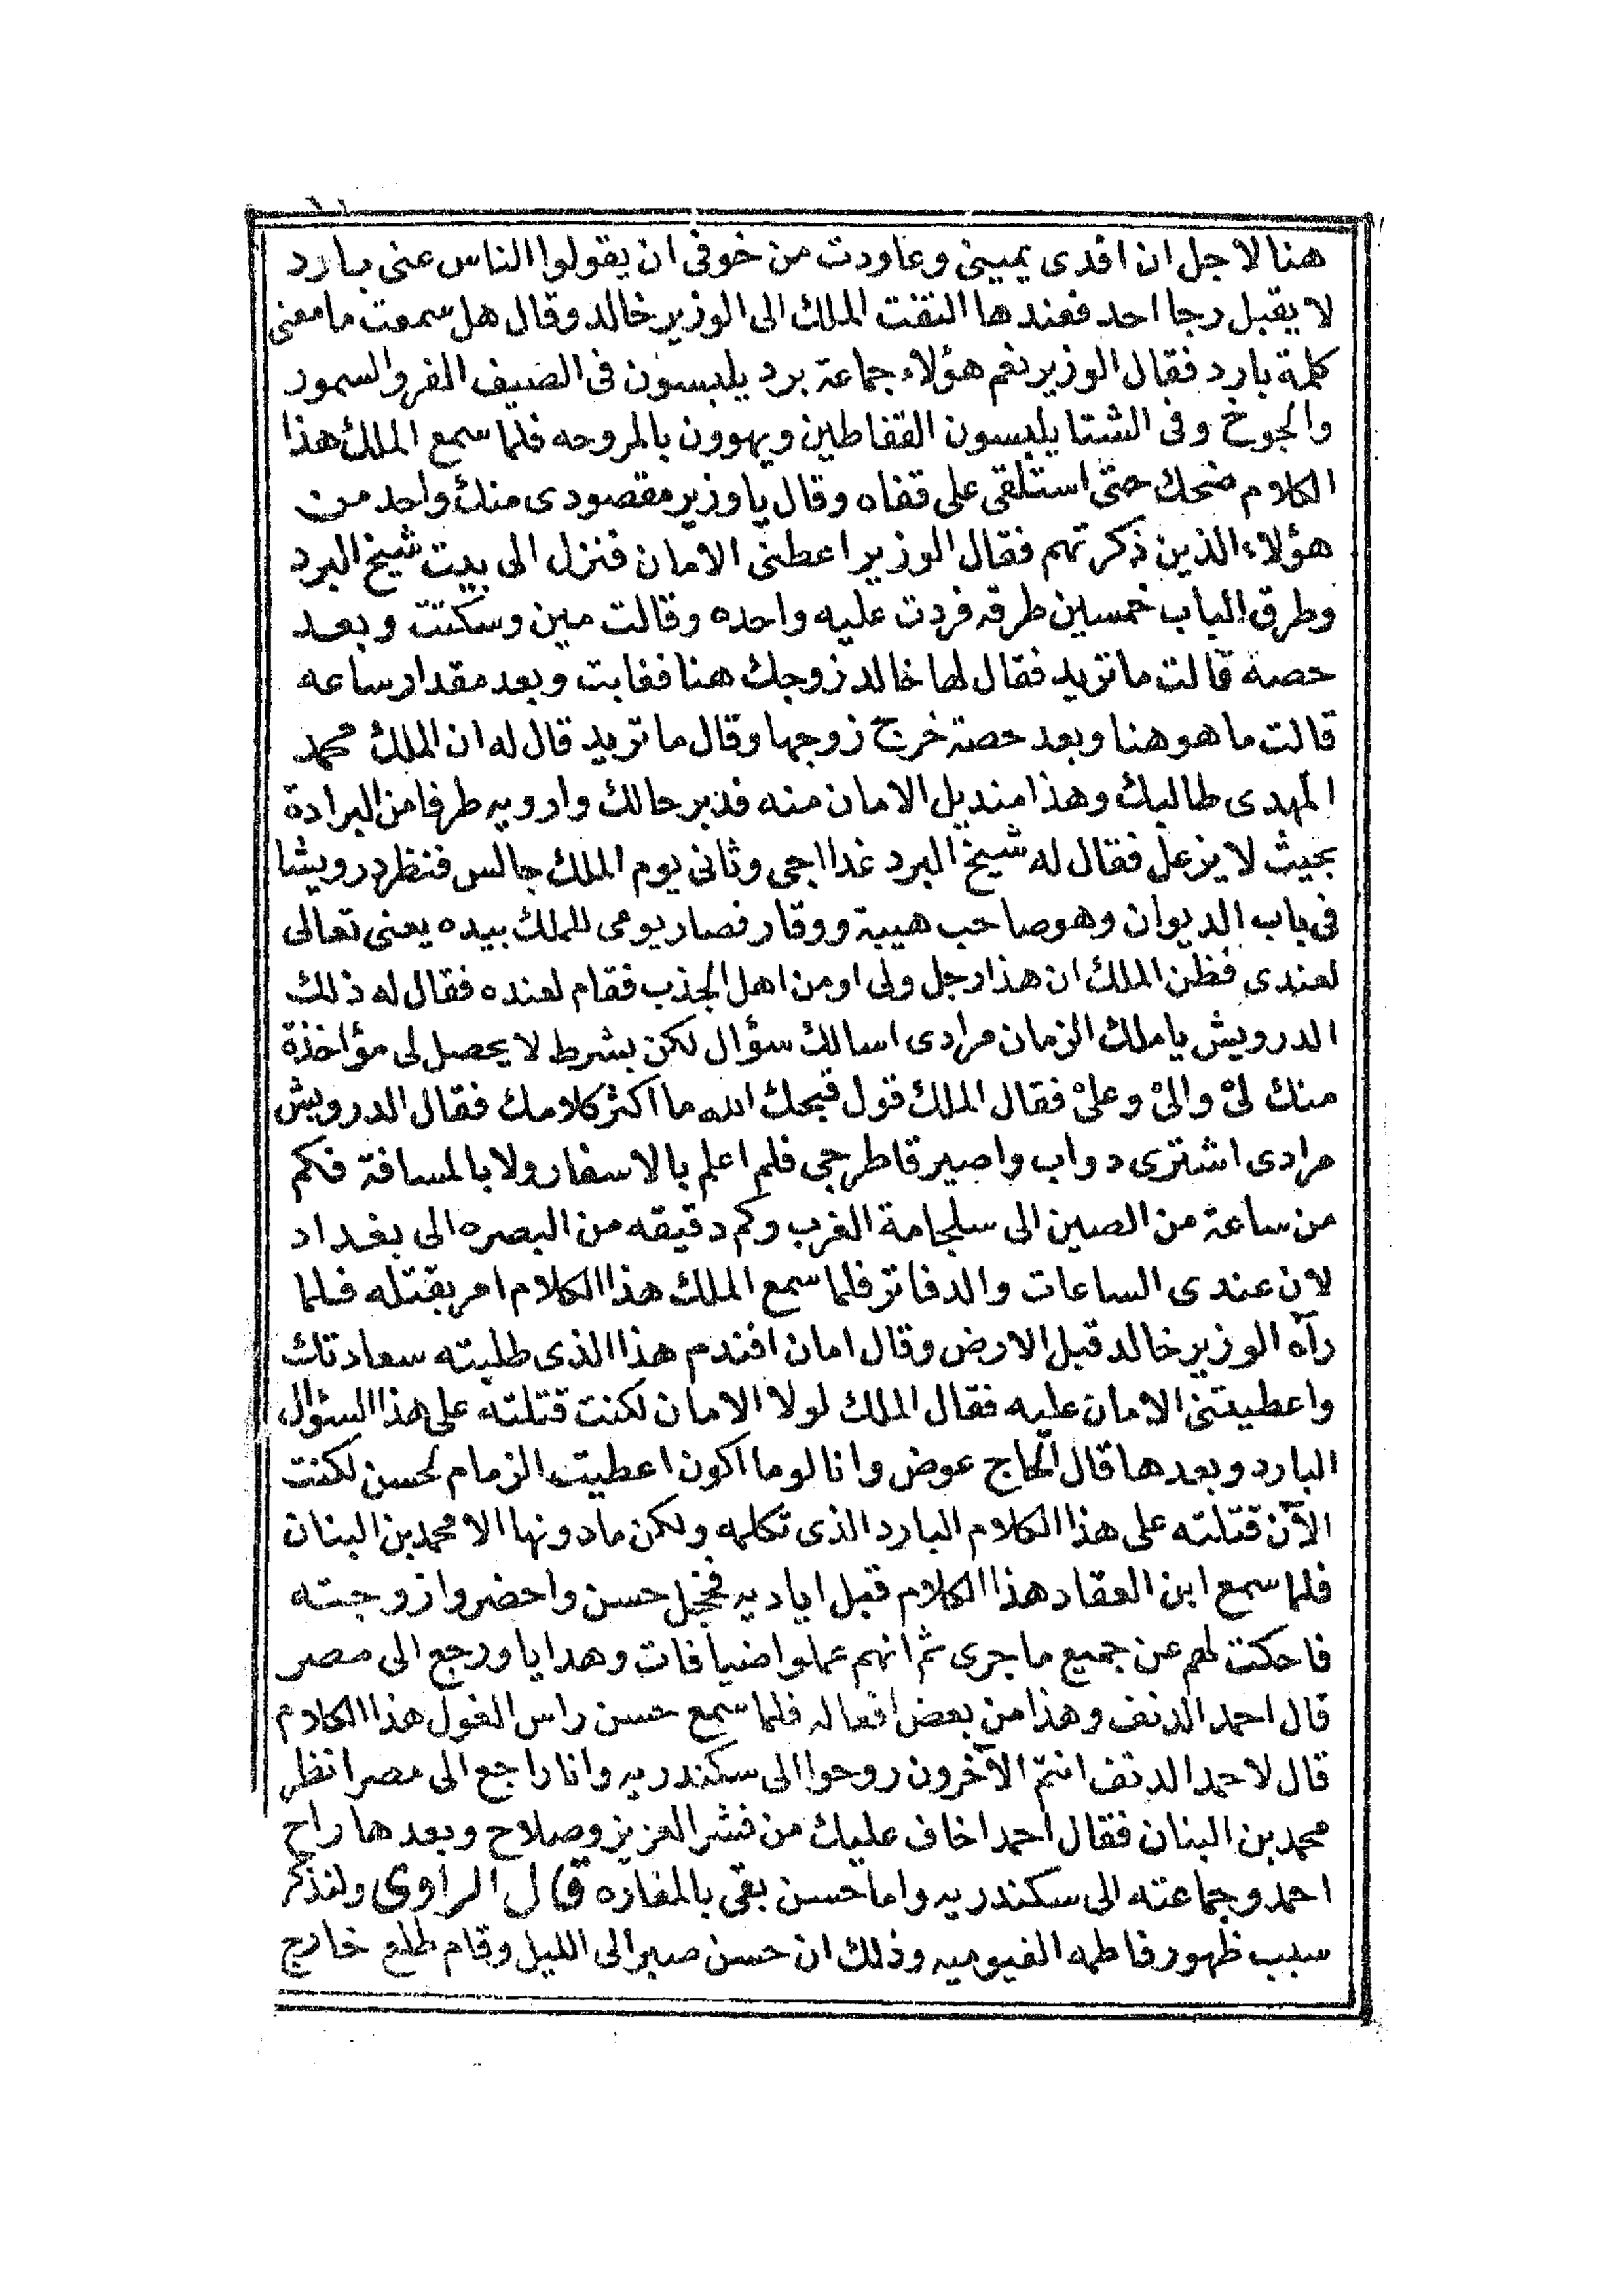 هنا لاجل ان افدى يمينى وعاودت من خوفى ان يقولوا الناس عنى بارد
لا يقبل رجا احد فعندها التفت الملك الى الوزير خالد وقال هل سمعت ما معنى
كلمة بارد فقال الوزير نعم هؤلاء جماعة برد يلبسون فى الصيف الفرو السمور
والجوخ وفى الشتا يلبسون القفاطين ويهوون بالمروحه فلما سمع الملك هذا
الكلام ضحك حتى استلقى على قفاه وقال يا وزير مقصودى منك واحد من
هؤلاء الذين ذكرتهم فقال الوزير اعطنى الامان فنزل الى بيت شيخ البرد
وطرق الباب خمسين طرقه فردت عليه واحده وقالت مين وسكتت وبعد
حصة قالت ما تريد فقال لها خالد زوجك هنا فغابت وبعد مقدار ساعه
قالت ما هو هنا وبعد حصة خرج زوجها وقال ما تريد قال له ان الملك محمد
المهدى طالبك وهذا منديل الامان منه فدبر حالك وارويه طرفا من البرادة
بحيث لا يزعل فقال له شيخ البرد غدا اجى وثانى يوم الملك جالس فنظر درويشا
فى باب الديوان وهو صاحب هيبة ووقار فصار يومى للملك بيده يعنى تعالى
لعندى فظن الملك ان هذا رجل ولى او من اهل الجذب فقام لعنده فقال له ذلك
الدرويش يا ملك الزمان مرادى اسالك سؤال لكن بشرط لا يحصل لى مؤاخذة
منك لىْ والىْ وعلىْ فقال الملك قول قبحك الله ما اكثر كلامك فقال الدرويش
مرادى اشترى دواب واصير قاطرجى فلم اعلم بالاسفار ولا بالمسافة فكم
من ساعة من الصين الى سلجامة الغرب وكم دقيقه من البصره الى بغداد
لان عندى الساعات والدفاتر فلما سمع الملك هذا الكلام امر بقتله فلما
رآه الوزير خالد قبل الارض وقال امان افندم هذا الذى طلبته سعادتك
واعطيتنى الامان عليه فقال الملك لولا الامان لكنت قتلته على هذا السؤال
البارد وبعدها قال الحاج عوض وانا لو ما اكون اعطيت الزمام لحسن لكنت
الآن قتلته على هذا الكلام البارد الذى تكلمه ولكن ما دونها الا محمد بن البنان
فلما سمع ابن العقاد هذا الكلام قبل اياديه فخجل حسن واحضروا زوجته
فاحكت لهم عن جميع ما جرى ثم انهم عملوا ضيافات وهدايا ورجع الى مصر
قال احمد الدنف وهذا من بعض افعاله فلما سمع حسن راس الغول هذا الكلام
قال لاحمد الدنف انتم الآخرون روحوا الى سكندريه وانا راجع الى مصر انظر
محمد بن البنان فقال احمد اخاف عليك من فشر العزيز وصلاح وبعدها راح
احمد وجماعته الى سكندريه واما حسن بقى بالمغاره قال الراوى ولنذكر
سبب ظهور فاطمه الفيوميه وذلك ان حسن صبر الى الليل وقام طلع خارج